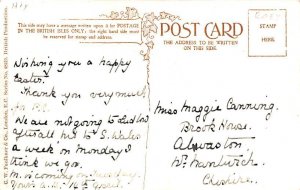 This side may have a message written upon it for POSTAGE
IN THE BRITISH ISLES ONLY; the right hand side must
be reserved for stamp and address.
POST CARD
THE ADDRESS TO BE WRITTEN
ON THIS SIDE.
STAMP
HERE.
Wishing you a happy
Easter.
Thank you very much
for P.C.
We are not going to
after all but to S. Wales
a week on Monday I
think we go.
M. is coming on Tuesday
Miss Maggie Canning.
Brook House.
Alpraham
Nr. Nantwich
Cheshire.
C. W. Faulkner & Co., London, E.C. Series